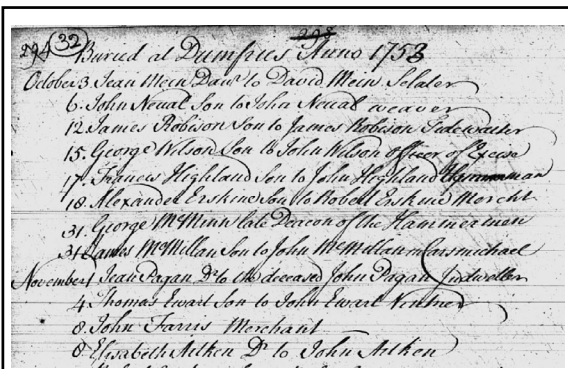 294 (32)
Buried at Dumfries Anno 1753
October 3. Jean Mein Daur to David Mein Sclater
6. John Neual Son to John Neual weaver
12. James Robison Son to James Robison Tidewaiter
15. George Wilson Son to John Wilson officer of Excise
17. Francis Highland Son to John Highland
18. Alexander Erskine Son to Robert Erskine Mercht
31. George McMinn late Deacon of the Hammermen
31 James McMillan Son to John McMillan in Carsmichael
November 1 Jean Pagan Dr to the deceased John Pagan
4. Thomas Ewart Son to John Ewart Vintner
8. John Farris Merchant
8. Elisabeth Aitken Dr to John Aitken